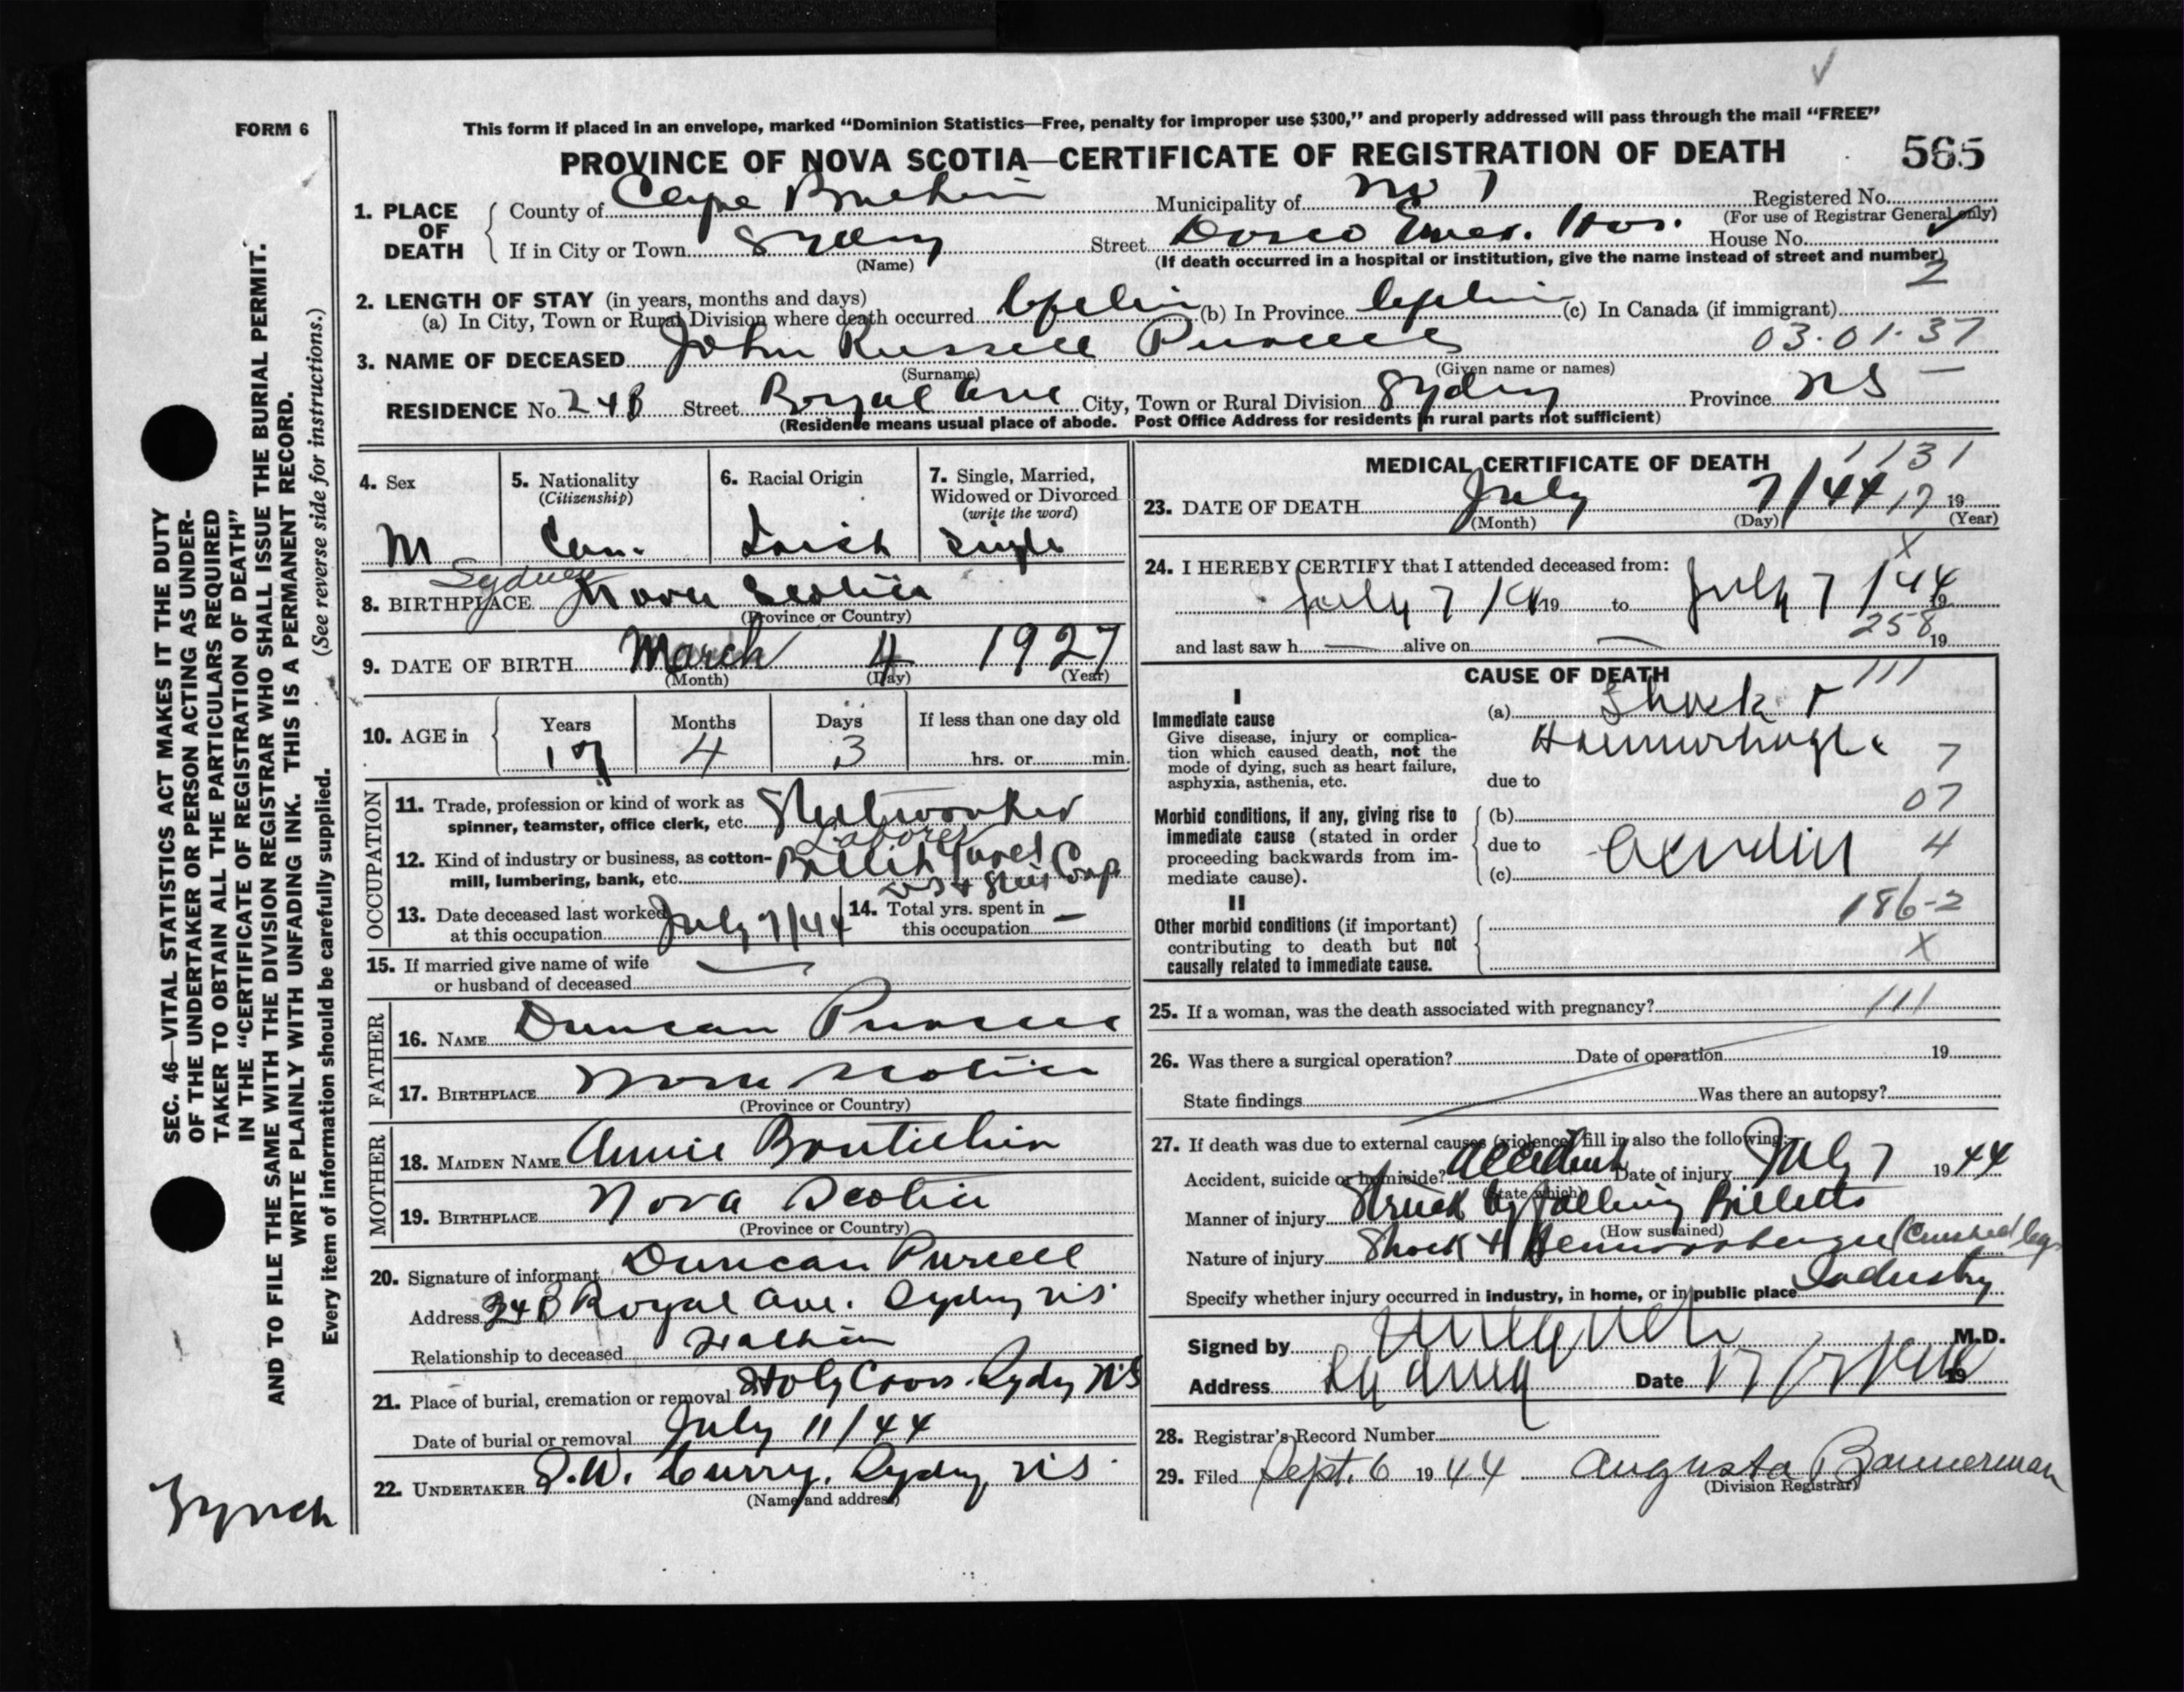 FORM 6
This form if placed in an envelope, marked “Dominion Statistics—Free, penalty for improper use $300,” and properly addressed will pass through the mail “FREE”
PROVINCE OF NOVA SCOTIA—CERTIFICATE OF REGISTRATION OF DEATH 565
1. PLACE OF DEATH
County of Cape Breton Municipality of No 7 Registered No.
(For use of Registrar General only)
If in City or Town Sydney Street Dosco Emer. Hos. House No.
(Name) (If death occurred in a hospital or institution, give the name instead of street and number)
2
2. LENGTH OF STAY (in years, months and days)
(a) In City, Town or Rural Division where death occurred (b) In Province (c) In Canada (if immigrant)
3. NAME OF DECEASED John Russell Purcell 03.01.37
(Surname) (Given name or names)
RESIDENCE No. 24B Street Royal Ave City, Town or Rural Division Sydney Province NS
(Residence means usual place of abode. Post Office Address for residents in rural parts not sufficient)
4. Sex M
5. Nationality (Citizenship) Can.
6. Racial Origin Irish
7. Single, Married, Widowed or Divorced (write the word) Single
8. BIRTHPLACE Sydney Nova Scotia
(Province or Country)
9. DATE OF BIRTH March 4 1927
(Month) (Day) (Year)
10. AGE in Years 17 Months 4 Days 3 If less than one day old
hrs. or min.
OCCUPATION
11. Trade, profession or kind of work as spinner, teamster, office clerk, etc. Steelworker
Laborer
12. Kind of industry or business, as cotton-mill, lumbering, bank, etc. Billet Yard
Steel Comp
13. Date deceased last worked at this occupation July 7/44
14. Total yrs. spent in this occupation —
15. If married give name of wife or husband of deceased —
FATHER
16. NAME Duncan Purcell
17. BIRTHPLACE Nova Scotia
(Province or Country)
MOTHER
18. MAIDEN NAME Annie Boutilier
19. BIRTHPLACE Nova Scotia
(Province or Country)
20. Signature of informant Duncan Purcell
Address 24B Royal Ave. Sydney NS
Relationship to deceased Father
21. Place of burial, cremation or removal Holy Cross. Sydney NS
Date of burial or removal July 11/44
22. UNDERTAKER Curry, Sydney, NS
(Name and address)
MEDICAL CERTIFICATE OF DEATH 1131
23. DATE OF DEATH July 7/44 17 19
(Month) (Day) (Year)
X
24. I HEREBY CERTIFY that I attended deceased from:
July 7/44 19 to July 7/44 19
258
and last saw h — alive on — 19
CAUSE OF DEATH 111
I
Immediate cause
Give disease, injury or complication which caused death, not the mode of dying, such as heart failure, asphyxia, asthenia, etc.
(a) Shock +
Haemorrhage
7
due to
07
Morbid conditions, if any, giving rise to immediate cause (stated in order proceeding backwards from immediate cause).
(b)
due to Accident 4
(c)
II
186-2
Other morbid conditions (if important) contributing to death but not causally related to immediate cause.
X
25. If a woman, was the death associated with pregnancy? 111
26. Was there a surgical operation? Date of operation 19
State findings Was there an autopsy?
27. If death was due to external causes (violence) fill in also the following:
Accident, suicide or homicide? Accident Date of injury July 7 1944
(State which)
Manner of injury Struck by falling Billetts
(How sustained)
Nature of injury Shock + Hemorrhage (Crushed leg
Specify whether injury occurred in industry, in home, or in public place Industry
Signed by M.D.
Address Sydney Date 19
28. Registrar's Record Number
29. Filed Sept. 6 1944 Augusta Bannerman
(Division Registrar)
SEC. 46—VITAL STATISTICS ACT MAKES IT THE DUTY
OF THE UNDERTAKER OR PERSON ACTING AS UNDER-
TAKER TO OBTAIN ALL THE PARTICULARS REQUIRED
IN THE “CERTIFICATE OF REGISTRATION OF DEATH”
AND TO FILE THE SAME WITH THE DIVISION REGISTRAR WHO SHALL ISSUE THE BURIAL PERMIT.
WRITE PLAINLY WITH UNFADING INK. THIS IS A PERMANENT RECORD.
Every item of information should be carefully supplied. (See reverse side for instructions.)
Lynch